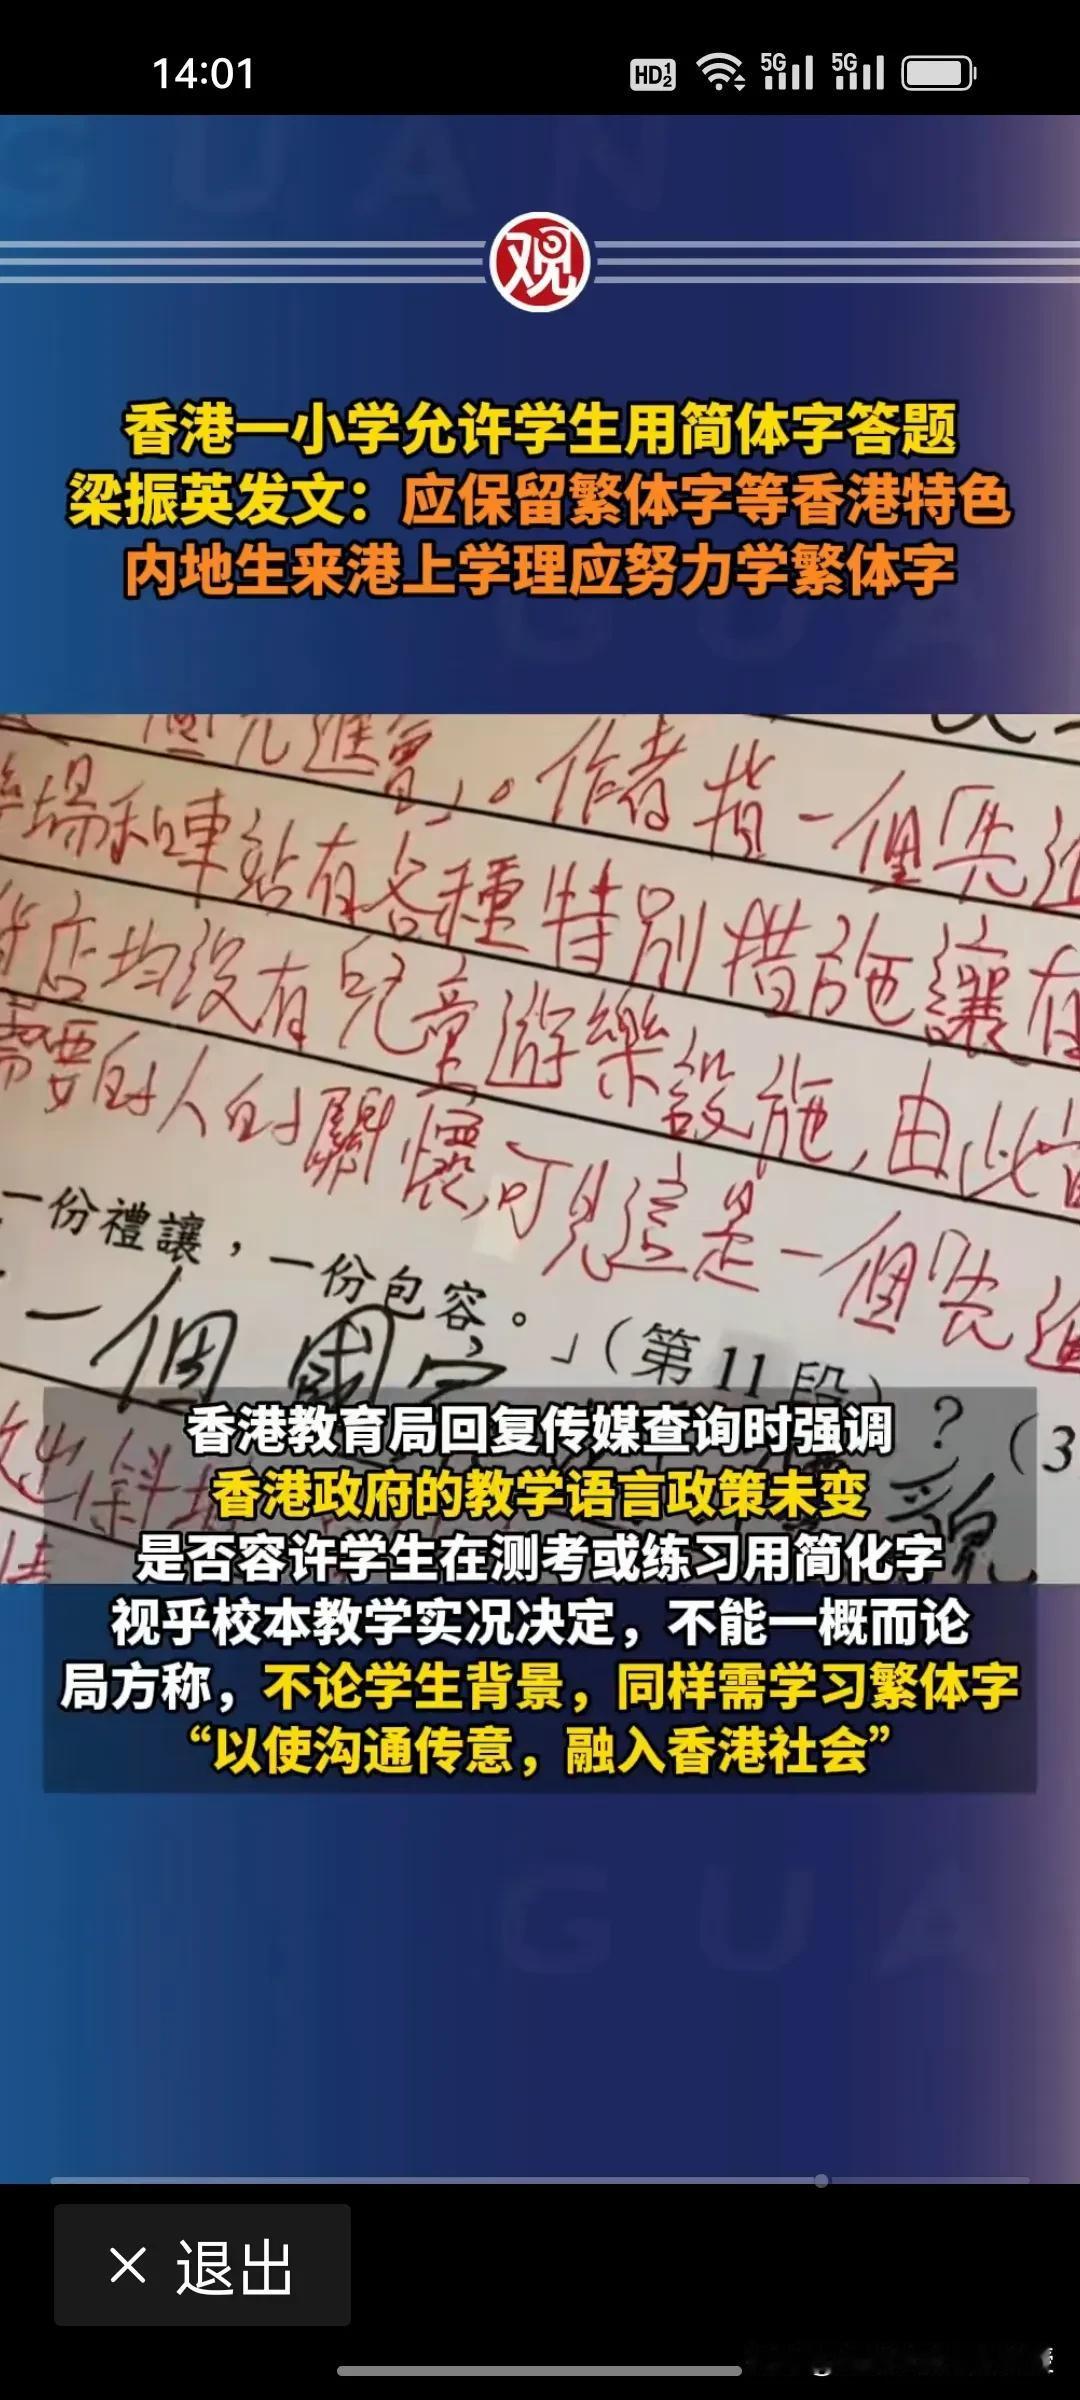 14:01
HD 1 2 5G 5G
GUAN
观
香港一小学允许学生用简体字答题
梁振英发文：应保留繁体字等香港特色
内地生来港上学理应努力学繁体字
GUA
作者指一個「先進
場和車站有各種特別措施讓有
店均沒有兒童遊樂設施，由此
需要的人的關懷，可見這是一個「先進
一份禮讓，一份包容。」（第 11 段）
一個國家
？（3
香港教育局回复传媒查询时强调
香港政府的教学语言政策未变
是否容许学生在测考或练习用简化字
视乎校本教学实况决定，不能一概而论
局方称，不论学生背景，同样需学习繁体字
“以使沟通传意，融入香港社会”
GUA
× 退出